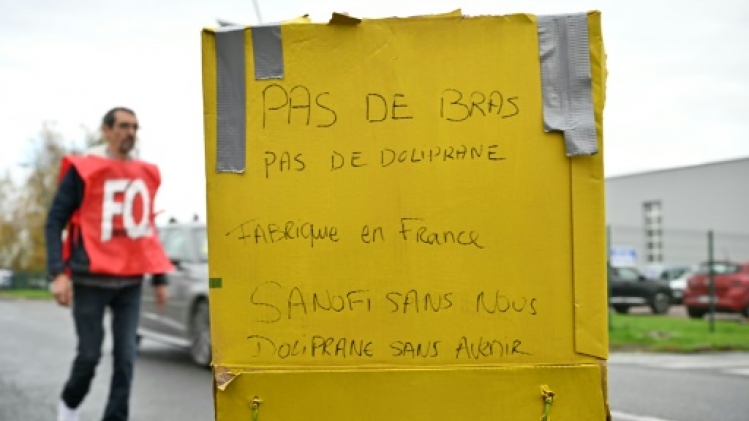 PAS DE BRAS
PAS DE DOLIPRANE
FABRIQUE en France
SANOFI SANS NOUS
DOLIPRANE SANS AVENIR
FO